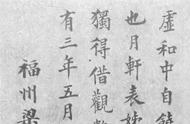 虛和中自
也月軒表
獨得借觀數
有三年五月
福州梁